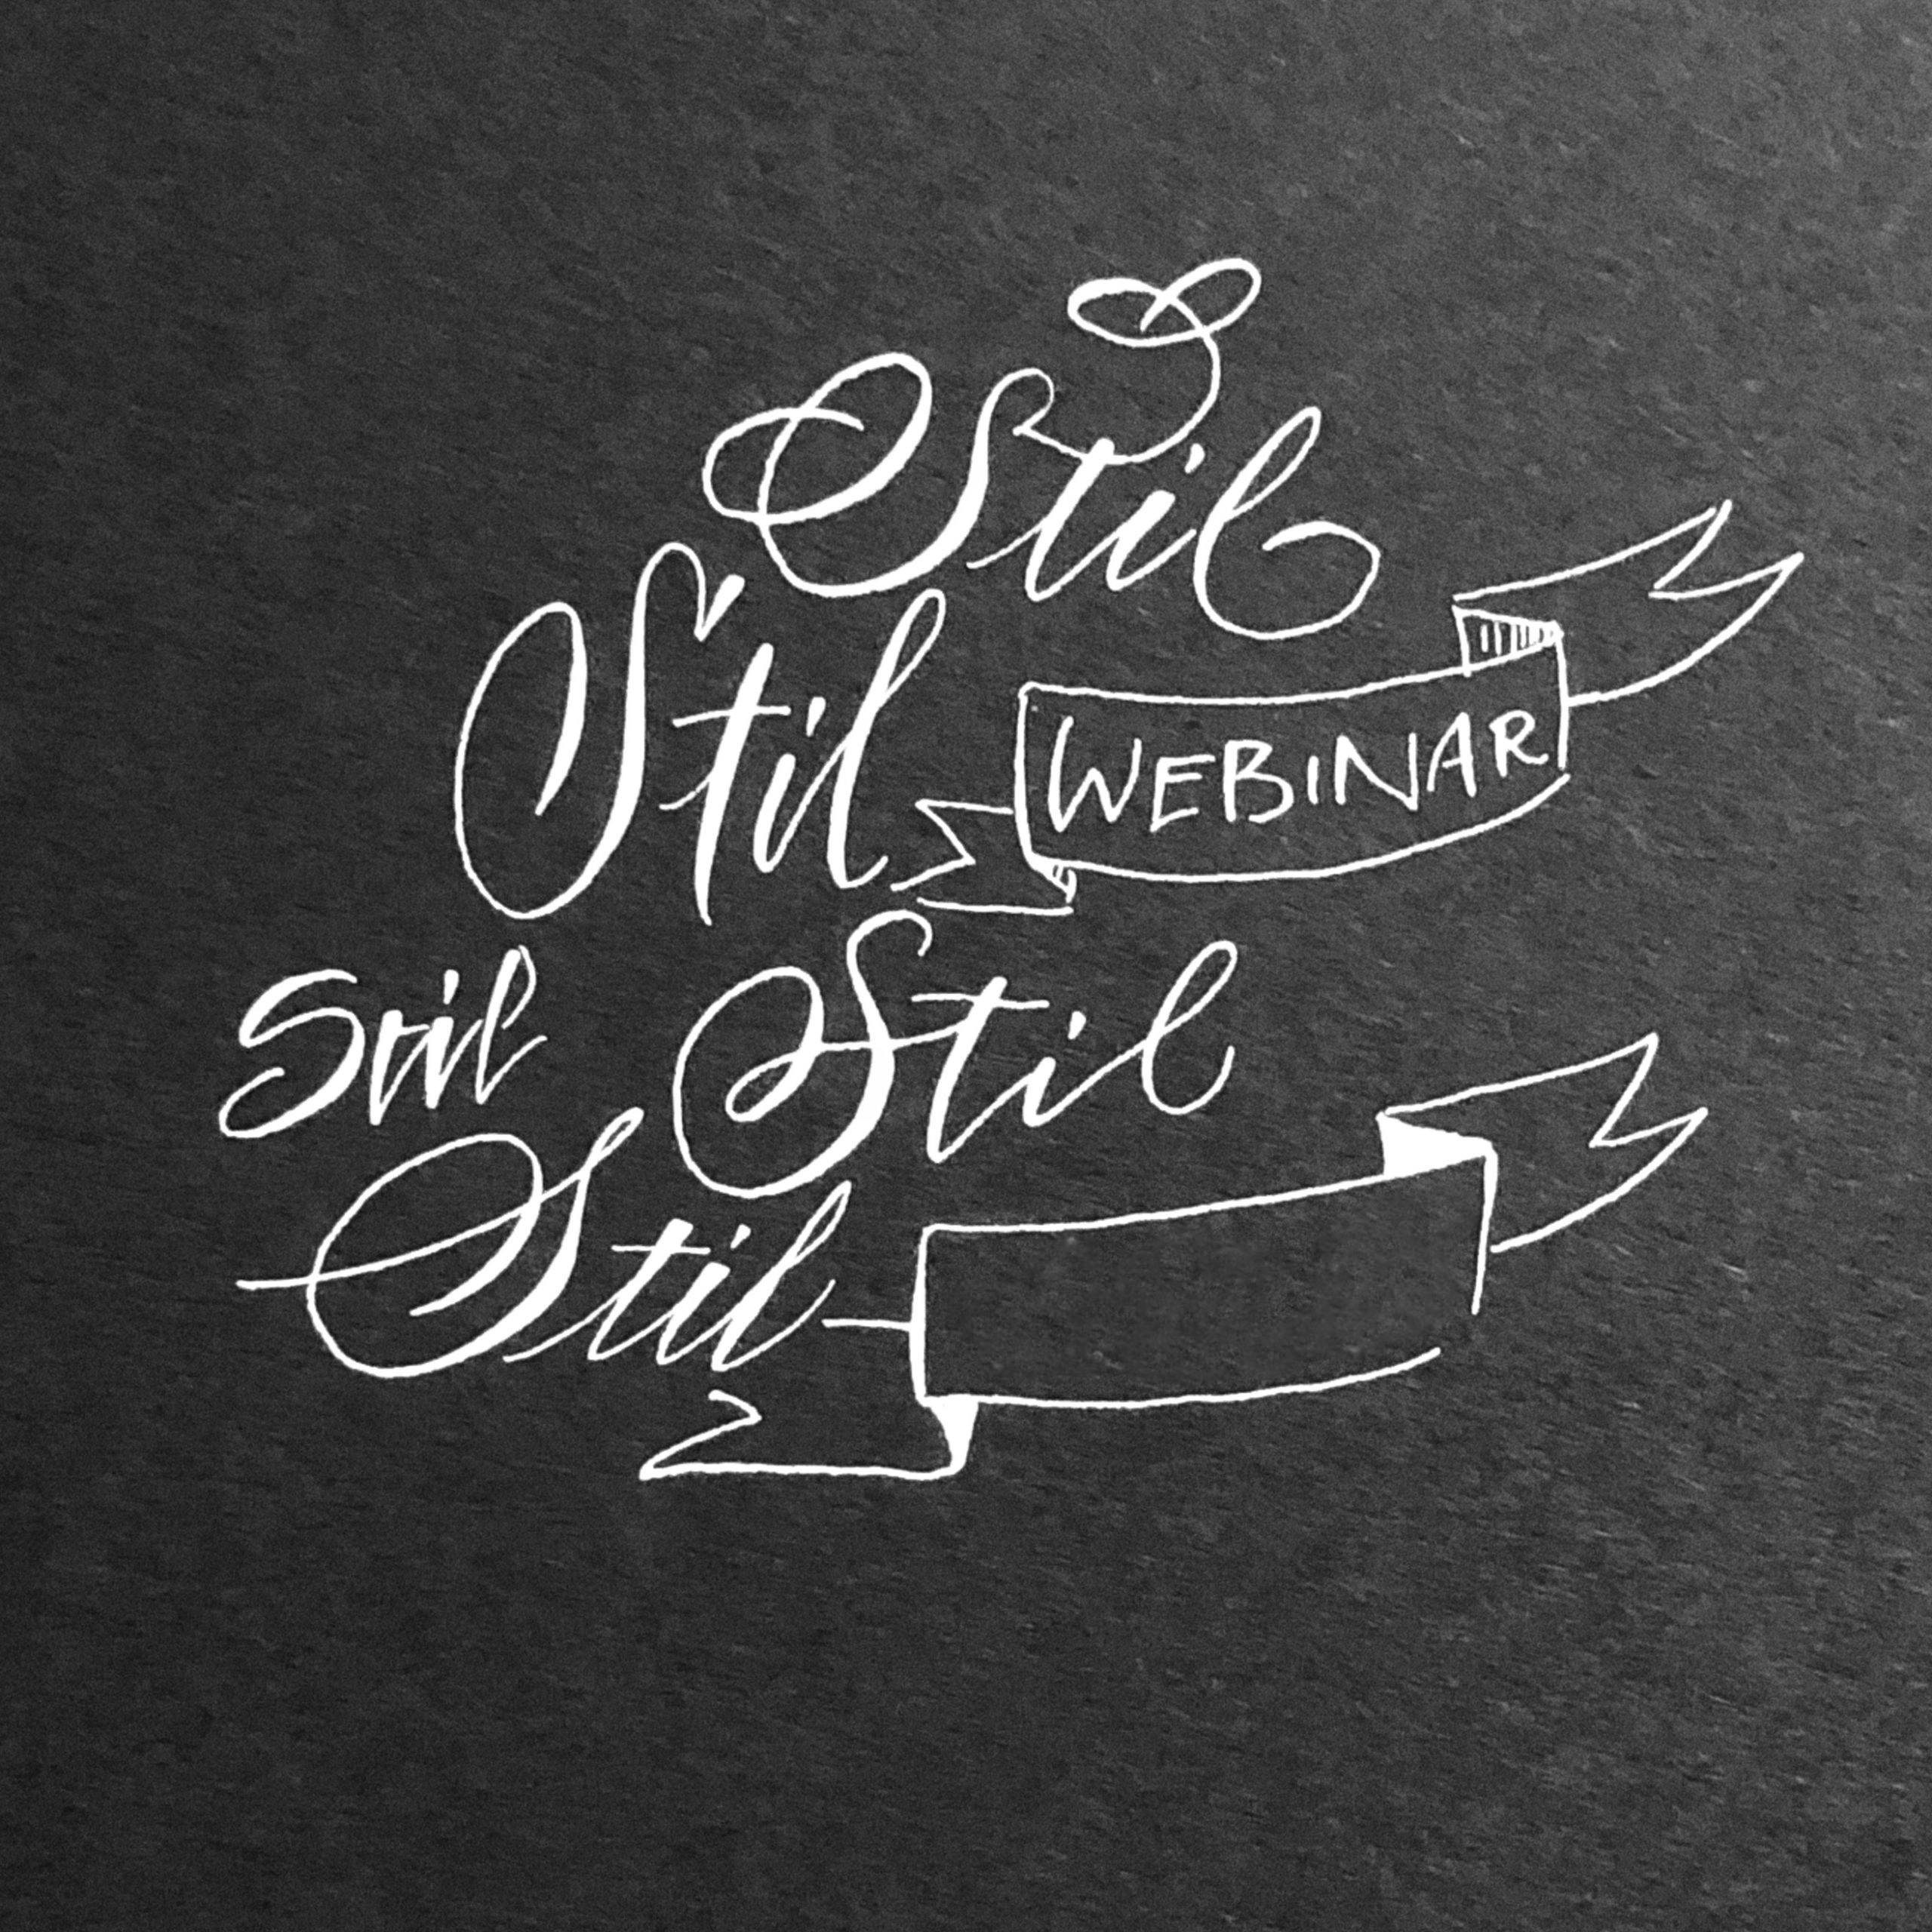 Stil
Stil WEBINAR
Stil Stil
Stil